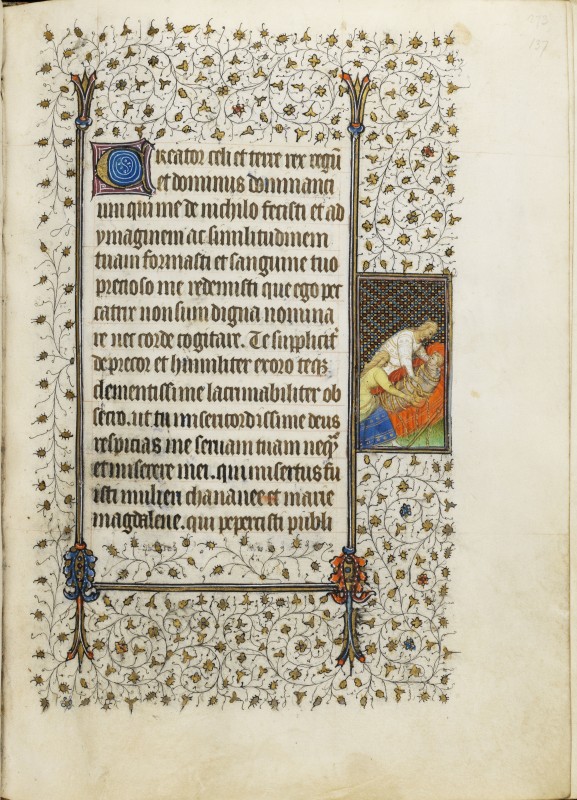 Creator celi et terre rex regū
et dominus dominanci
um qui me de nichilo fecisti et ad
ymaginem ac similitudinem
tuam formasti et sanguine tuo
precioso me redemisti que ego pec
catrix non sum digna nomina
re nec corde cogitare. Te supplicit͛
deprecor et humiliter exoro teqꝫ
clementissime lacrimabiliter ob
secro. ut tu misericordissime deus
respicias me seruam tuam neqꝫ
et miserere mei. qui misertus fu
isti mulieri chananee et marie
magdalene. qui pepercisti publi
137